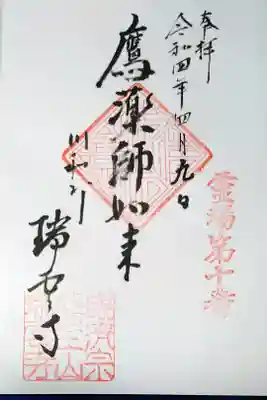 奉拝
令和四年四月九日
霊場第十番
鷹薬師如来
川和町
瑞雲寺